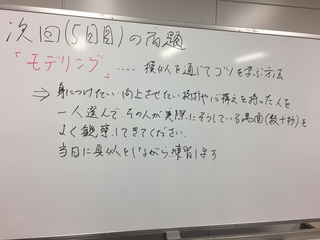 次回(5回目)の宿題
「モデリング」‥‥模倣人を通じてコツを学ぶ方法
⇒身につけたい、向上させたい技術や心構えを持った人を
一人選んで、その人が実際にそうしている場面(数十秒)を
よく観察してきてください。
当日に真似をしながら、練習します